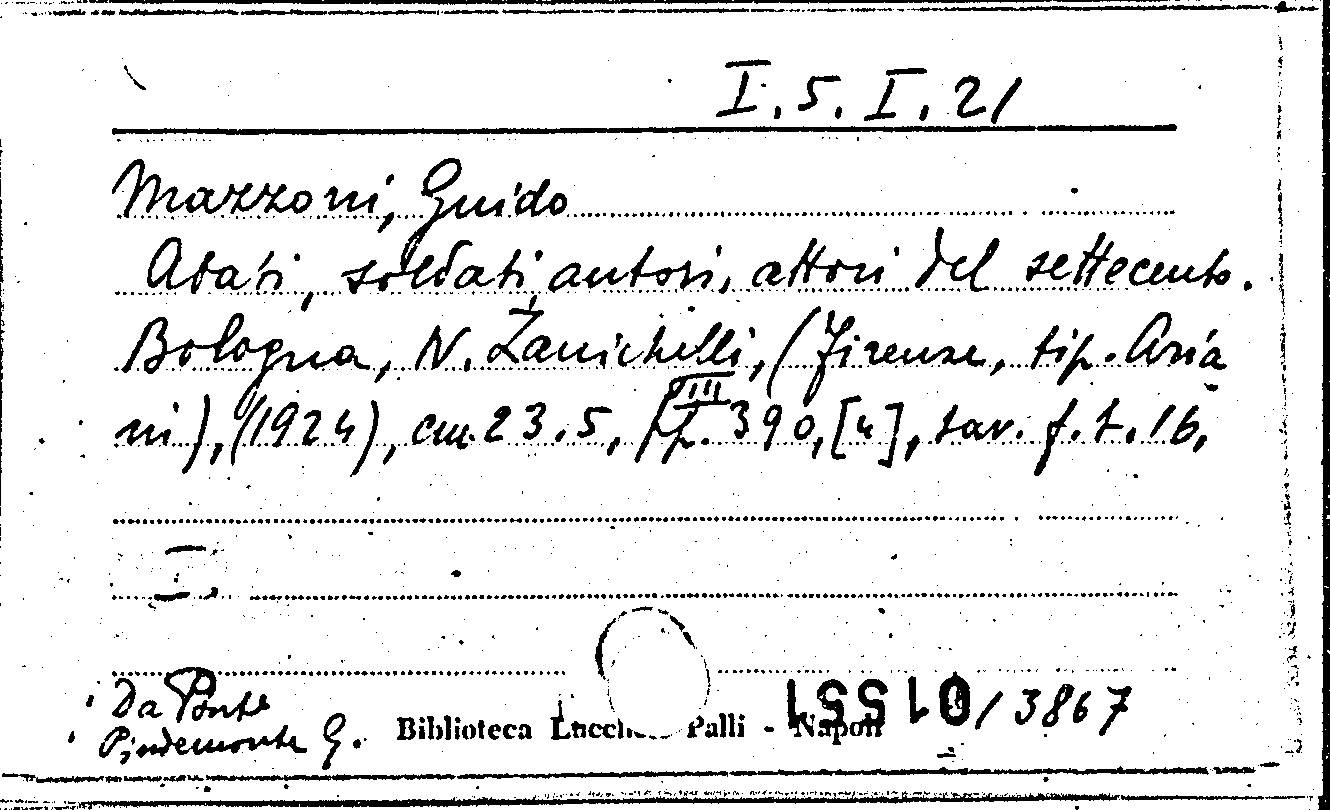 I. 5. I. 21
Mazzoni, Guido
Abati, soldati, autori, attori del settecento.
Bologna, N. Zanichelli, (Firenze, tip. Aria
ni), (1924), cm. 23.5, pp. III 390, [4], tav. f. t. 16,
I.
Da Ponte
Pindemonte G.
Biblioteca Lucchesi Palli - Napoli
/3867